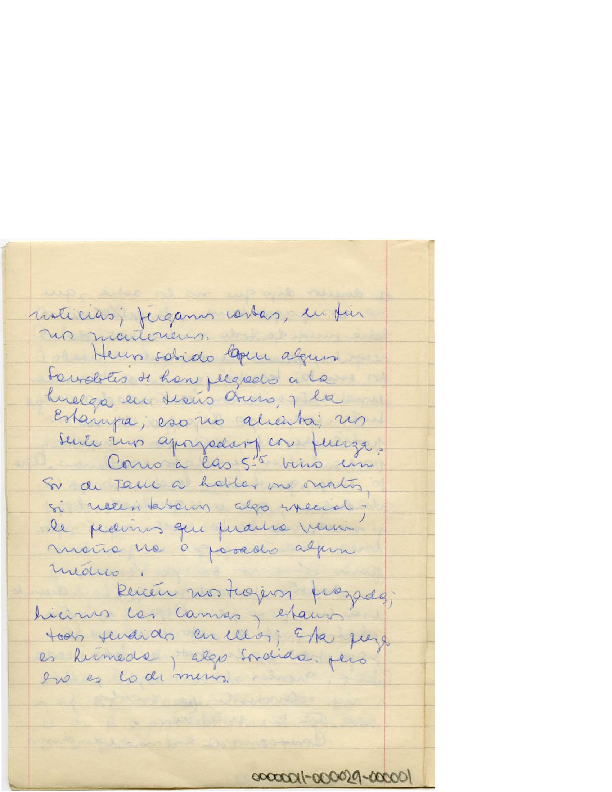 noticias; jugamos cartas, en fin
nos mantenemos.
Hemos sabido que algunos
se han pegado a la
huelga en Caño, y la
Estampa, eso no alienta; nos
sentimos apoyados con fuerza.
Como a las 5 vino un
Sr de Tasa a hablar con nosotros,
si necesitabamos algo especial;
le pedimos que pudiera venir
mañana o pasado algun
médico.
Recién nos trajeron frazadas;
hicimos las camas y estamos
todos tendidos en ellas; Esta pieza
es húmeda y algo sordida. pero
eso es lo de menos.
0000011-000029-000001